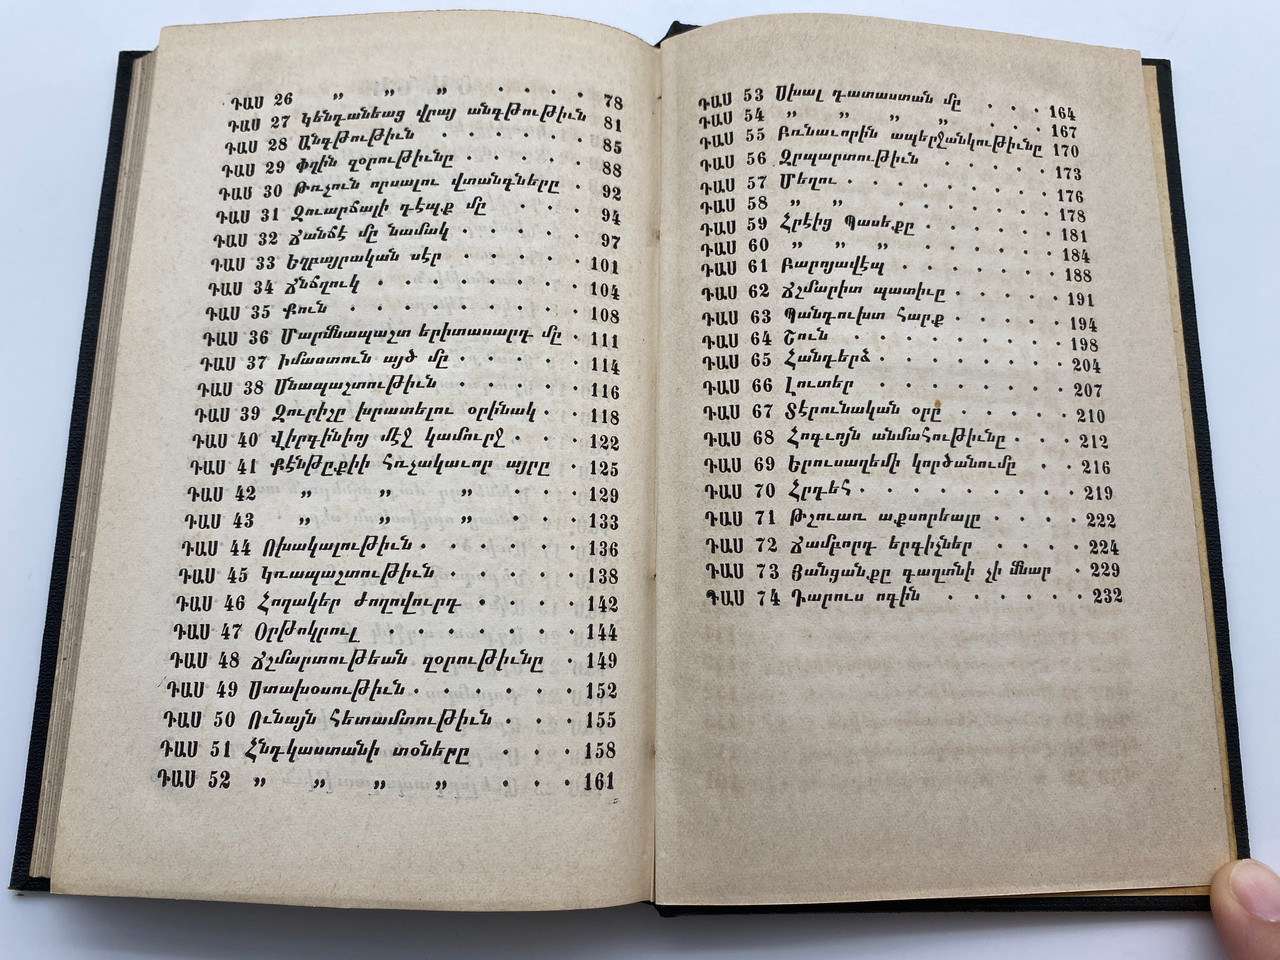 ԴԱՍ 26 „ „ „ . . . . 78
ԴԱՍ 27 Կենդանեաց վրայ անգթութիւն 81
ԴԱՍ 28 Անգթութիւն . . . . . . 85
ԴԱՍ 29 Փղին զօրութիւնը . . . . . 88
ԴԱՍ 30 Թռչուն որսալու վտանգները . 92
ԴԱՍ 31 Զուարճալի դէպք մը . . . 94
ԴԱՍ 32 Ճանճէ մը նամակ . . . . . 97
ԴԱՍ 33 Եղբայրական սէր . . . . . 101
ԴԱՍ 34 Ճնճղուկ . . . . . . . . 104
ԴԱՍ 35 Քուն . . . . . . . . . 108
ԴԱՍ 36 Մարմնապաշտ երիտասարդ մը . 111
ԴԱՍ 37 Իմաստուն այծ մը . . . . . 114
ԴԱՍ 38 Սնապաշտութիւն . . . . . 116
ԴԱՍ 39 Զուրիչը խրատելու օրինակ . . 118
ԴԱՍ 40 Վիրգինիոյ մէջ կամուրջ . . . 122
ԴԱՍ 41 Քէնթըքիի հռչակաւոր այրը . 125
ԴԱՍ 42 „ „ „ . . . 129
ԴԱՍ 43 „ „ „ . . . 133
ԴԱՍ 44 Ոխակալութիւն . . . . . . 136
ԴԱՍ 45 Կռապաշտութիւն . . . . . 138
ԴԱՍ 46 Հողակեր ժողովուրդ . . . . 142
ԴԱՍ 47 Օրթոկրուլ . . . . . . . 144
ԴԱՍ 48 Ճշմարտութեան զօրութիւնը . 149
ԴԱՍ 49 Ստախօսութիւն . . . . . . 152
ԴԱՍ 50 Ունայն հետամտութիւն . . . 155
ԴԱՍ 51 Հնդկաստանի տօները . . . 158
ԴԱՍ 52 „ „ „ „ . . . 161
ԴԱՍ 53 Սխալ դատաստան մը . . . 164
ԴԱՍ 54 „ „ „ „ . . . 167
ԴԱՍ 55 Բռնաւորին ապերջանկութիւնը 170
ԴԱՍ 56 Զրպարտութիւն . . . . . 173
ԴԱՍ 57 Մեղու . . . . . . . . . 176
ԴԱՍ 58 „ „ . . . . . . . 178
ԴԱՍ 59 Հրէից Պասեքը . . . . . . 181
ԴԱՍ 60 „ „ „ . . . . . 184
ԴԱՍ 61 Բարոյավէպ . . . . . . . 188
ԴԱՍ 62 Ճշմարիտ պատիւը . . . . . 191
ԴԱՍ 63 Պանդուխտ հարք . . . . . 194
ԴԱՍ 64 Շուն . . . . . . . . . 198
ԴԱՍ 65 Հանդերձ . . . . . . . . 204
ԴԱՍ 66 Լուտեր . . . . . . . . 207
ԴԱՍ 67 Տէրունական օրը . . . . . 210
ԴԱՍ 68 Հոգւոյն անմահութիւնը . . . 212
ԴԱՍ 69 Երուսաղեմի կործանումը . . 216
ԴԱՍ 70 Հրդեհ . . . . . . . . . 219
ԴԱՍ 71 Թշուառ աքսորեալը . . . . 222
ԴԱՍ 72 Ճամբորդ երգիչներ . . . . 224
ԴԱՍ 73 Յանցանքը գաղտնի չի մնար . 229
ԴԱՍ 74 Դարուս ոգին . . . . . . 232